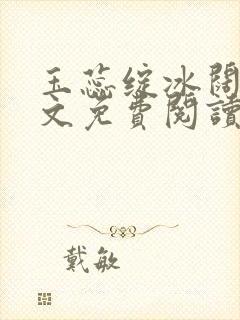 玉蕊绽冰闊
文免費閱讀
戴敏